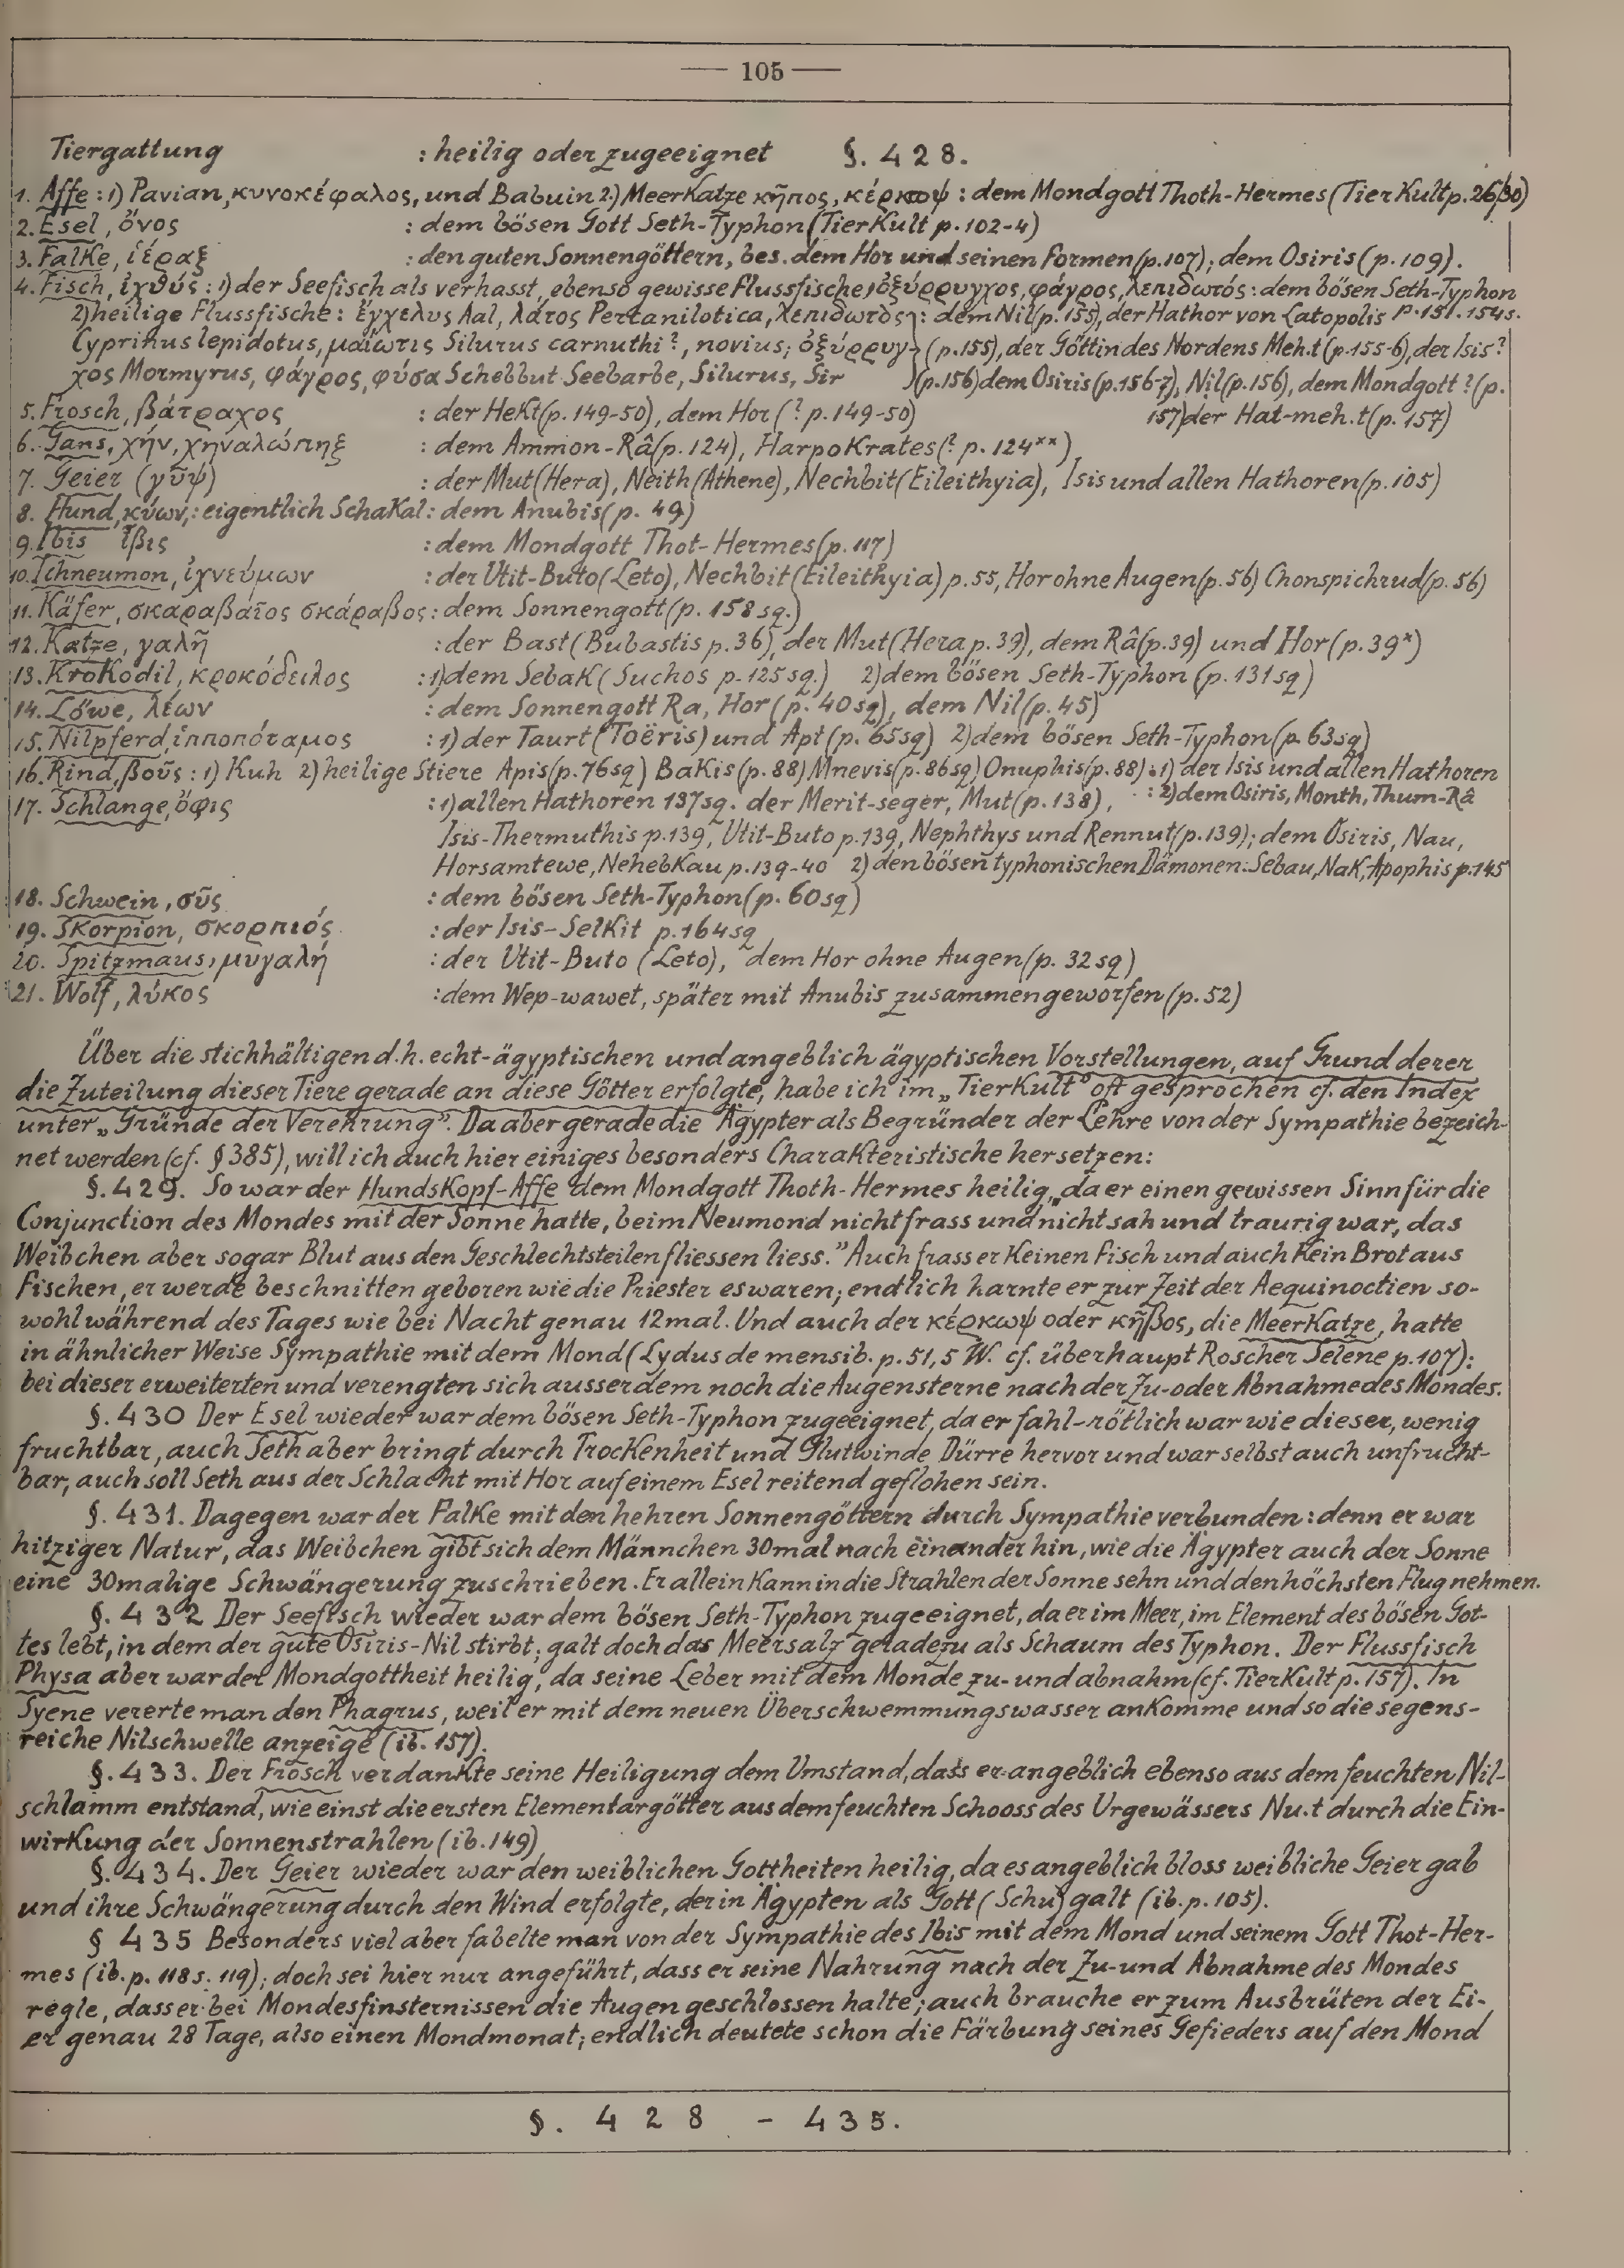 — 105 —
Tiergattung : heilig oder zugeeignet §. 428.
1. Affe : 1) Pavian, κυνοκέφαλος, und Babuin 2.) Meerkatze κῆπος, κέρκοψ : dem Mondgott Thoth-Hermes (Tierkult p. 26/30)
2. Esel, ὄνος : dem bösen Gott Seth-Typhon (Tierkult p. 102-4)
3. Falke, ἱέραξ : den guten Sonnengöttern, bes. dem Hor und seinen Formen (p. 107); dem Osiris (p. 109).
4. Fisch, ἰχθύς : 1) der Seefisch als verhasst, ebenso gewisse Flussfische, ὀξύρρυγχος, φάγρος, λεπιδωτός : dem bösen Seth-Typhon
2) heilige Flussfische : ἔγχελυς Aal, λάτος Percanilotica, λεπιδωτὸς : dem Nil (p. 155), der Hathor von Latopolis p. 151. 154s.
Cyprinus lepidotus, μαίωτις Silurus carnuthi ?, novius; ὀξύρρυγ- (p. 155), der Göttin des Nordens Meh.t (p. 155-6), der Isis ?
χος Mormyrus, φάγρος, φύσα Schebbut Seebarbe, Silurus, Sir (p. 156) dem Osiris (p. 156-7), Nil (p. 156), dem Mondgott ? (p.
5. Frosch, βάτραχος : der Hekt (p. 149-50), dem Hor (? p. 149-50) 157) der Hat-meh.t (p. 157)
6. Gans, χήν, χηναλώπηξ : dem Ammon-Râ (p. 124), Harpokrates (? p. 124**)
7. Geier (γῦψ) : der Mut (Hera), Neith (Athene), Nechbit (Eileithyia), Isis und allen Hathoren (p. 105)
8. Hund, κύων, : eigentlich Schakal : dem Anubis (p. 49)
9. Ibis ἶβις : dem Mondgott Thot-Hermes (p. 117)
10. Ichneumon, ἰχνεύμων : der Utit-Buto (Leto), Nechbit (Eileithyia) p. 55, Hor ohne Augen (p. 56) Chonspichrud (p. 56)
11. Käfer, σκαραβαῖος σκάραβος : dem Sonnengott (p. 158 sq.)
12. Katze, γαλῆ : der Bast (Bubastis p. 36), der Mut (Hera p. 39), dem Râ (p. 39) und Hor (p. 39*)
13. Krokodil, κροκόδειλος : 1) dem Sebak (Suchos p. 125 sq.) 2) dem bösen Seth-Typhon (p. 131 sq)
14. Löwe, λέων : dem Sonnengott Ra, Hor (p. 40 sq), dem Nil (p. 45)
15. Nilpferd, ἱπποπόταμος : 1) der Taurt (Toëris) und Apt (p. 65 sq) 2) dem bösen Seth-Typhon (p. 63 sq)
16. Rind, βοῦς : 1) Kuh 2) heilige Stiere Apis (p. 76 sq) Bakis (p. 88) Mnevis (p. 86 sq) Onuphis (p. 88) : 1) der Isis und allen Hathoren
17. Schlange, ὄφις : 1) allen Hathoren 137 sq. der Merit-seger, Mut (p. 138), : 2) dem Osiris, Month, Thum-Râ
Isis-Thermuthis p. 139, Utit-Buto p. 139, Nephthys und Rennut (p. 139); dem Osiris, Nau,
Horsamtewe, Nehebkau p. 139-40 2) den bösen typhonischen Dämonen : Sebau, Nak, Apophis p. 145
18. Schwein, σῦς : dem bösen Seth-Typhon (p. 60 sq)
19. Skorpion, σκορπιός : der Isis-Selkit p. 164 sq
20. Spitzmaus, μυγαλῆ : der Utit-Buto (Leto), dem Hor ohne Augen (p. 32 sq)
21. Wolf, λύκος : dem Wep-wawet, später mit Anubis zusammengeworfen (p. 52)
Über die stichhältigen d.h. echt-ägyptischen und angeblich ägyptischen Vorstellungen, auf Grund derer
die Zuteilung dieser Tiere gerade an diese Götter erfolgte, habe ich im „Tierkult" oft gesprochen cf. den Index
unter „Gründe der Verehrung". Da aber gerade die Ägypter als Begründer der Lehre von der Sympathie bezeich-
net werden (cf. § 385), will ich auch hier einiges besonders Charakteristische hersetzen:
§. 429. So war der Hundskopf-Affe dem Mondgott Thoth-Hermes heilig, „da er einen gewissen Sinn für die
Conjunction des Mondes mit der Sonne hatte, beim Neumond nicht frass und nicht sah und traurig war, das
Weibchen aber sogar Blut aus den Geschlechtsteilen fliessen liess." Auch frass er keinen Fisch und auch kein Brot aus
Fischen, er werde beschnitten geboren wie die Priester es waren; endlich harnte er zur Zeit der Aequinoctien so-
wohl während des Tages wie bei Nacht genau 12mal. Und auch der κέρκωψ oder κῆβος, die Meerkatze, hatte
in ähnlicher Weise Sympathie mit dem Mond (Lydus de mensib. p. 51, 5 W. cf. überhaupt Roscher Selene p. 107):
bei dieser erweiterten und verengten sich ausserdem noch die Augensterne nach der Zu- oder Abnahme des Mondes.
§. 430 Der Esel wieder war dem bösen Seth-Typhon zugeeignet, da er fahl-rötlich war wie dieser, wenig
fruchtbar, auch Seth aber bringt durch Trockenheit und Glutwinde Dürre hervor und war selbst auch unfrucht-
bar, auch soll Seth aus der Schlacht mit Hor auf einem Esel reitend geflohen sein.
§. 431. Dagegen war der Falke mit den hehren Sonnengöttern durch Sympathie verbunden : denn er war
hitziger Natur, das Weibchen gibt sich dem Männchen 30mal nach einander hin, wie die Ägypter auch der Sonne
eine 30malige Schwängerung zuschrieben. Er allein kann in die Strahlen der Sonne sehn und den höchsten Flug nehmen.
§. 432 Der Seefisch wieder war dem bösen Seth-Typhon zugeeignet, da er im Meer, im Element des bösen Got-
tes lebt, in dem der gute Osiris-Nil stirbt; galt doch das Meersalz geradezu als Schaum des Typhon. Der Flussfisch
Physa aber war der Mondgottheit heilig, da seine Leber mit dem Monde zu- und abnahm (cf. Tierkult p. 157). In
Syene vererte man den Phagrus, weil er mit dem neuen Überschwemmungswasser ankomme und so die segens-
reiche Nilschwelle anzeige (ib. 157).
§. 433. Der Frosch verdankte seine Heiligung dem Umstand, dass er angeblich ebenso aus dem feuchten Nil-
schlamm entstand, wie einst die ersten Elementargötter aus dem feuchten Schooss des Urgewässers Nu.t durch die Ein-
wirkung der Sonnenstrahlen (ib. 149)
§. 434. Der Geier wieder war den weiblichen Gottheiten heilig, da es angeblich bloss weibliche Geier gab
und ihre Schwängerung durch den Wind erfolgte, der in Ägypten als Gott (Schu) galt (ib. p. 105).
§ 435 Besonders viel aber fabelte man von der Sympathie des Ibis mit dem Mond und seinem Gott Thot-Her-
mes (ib. p. 118 s. 119); doch sei hier nur angeführt, dass er seine Nahrung nach der Zu- und Abnahme des Mondes
regle, dass er bei Mondesfinsternissen die Augen geschlossen halte; auch brauche er zum Ausbrüten der Ei-
er genau 28 Tage, also einen Mondmonat; endlich deutete schon die Färbung seines Gefieders auf den Mond
§. 428 - 435.